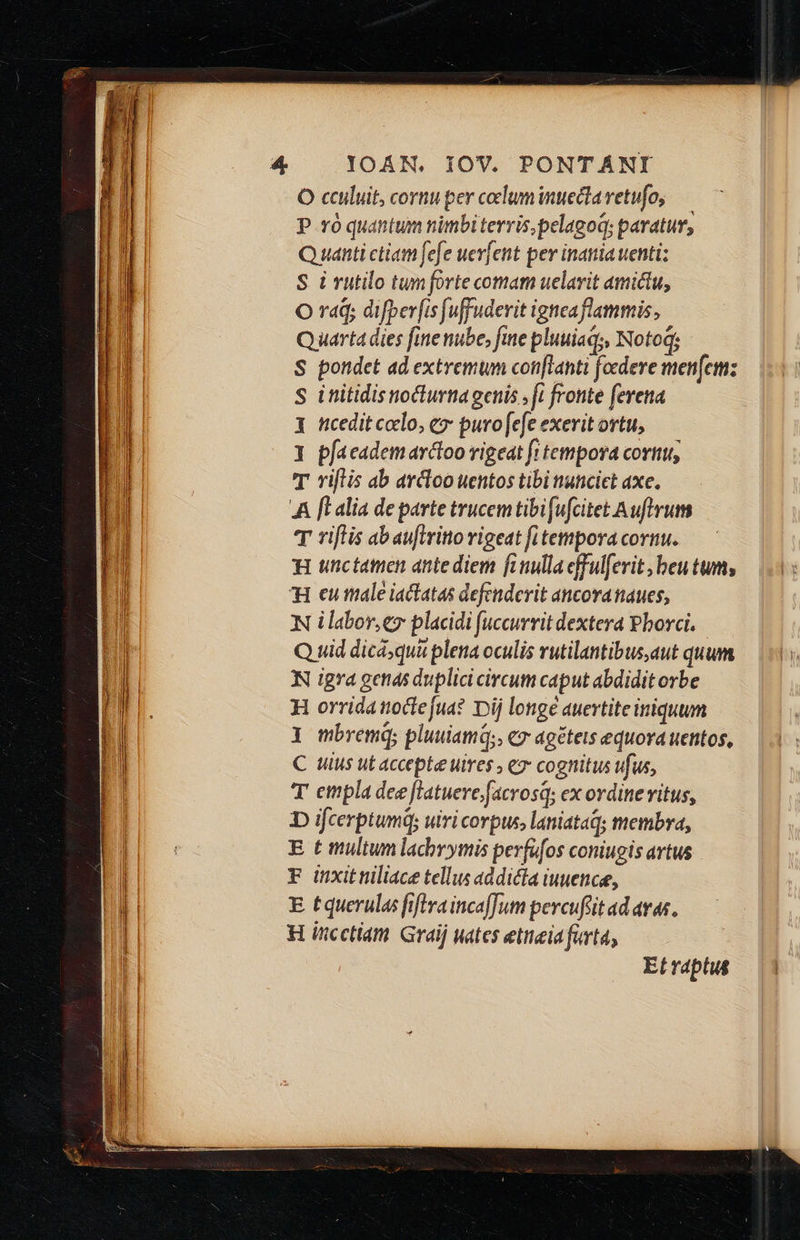 4 IOAN. IOV. PONTANI
O cculuit, cornu per cœlum inuecta retuſo,
P rò quantum nimbi terris, pelagoq; paratur,
Q uanti etiam ſeſe uerſent per inania uenti:
S i rutilo tum forte comam uelarit amictu,
O raq; diſperſis ſuffuderit ignea flammis,
Q uarta dies ſine nube, ſine pluuiaq;, Notoq;
S pondet ad extremum conſtanti fœdere menſem:
S i nitidis nocturna genis, ſi fronte ſerena
I ncedit cœlo, & puro ſeſe exerit ortu,
I pſa eadem arctoo rigeat ſi tempora cornu,
T riſtis ab arctoo uentos tibi nunciet axe.
A ſt alia de parte trucem tibi ſuſcitet Auſtrum
T riſtis ab auſtrino rigeat ſi tempora cornu.
H unc tamen ante diem ſi nulla effulſerit, heu tum,
H eu male iactatas defenderit ancora naues,
N i labor, & placidi ſuccurrit dextera Phorci.
Q uid dicā, quū plena oculis rutilantibus, aut quum
N igra genas duplici circum caput abdidit orbe
H orrida nocte ſua? Dij longe auertite iniquum
I mbremq; pluuiamq;, & agēteis equora uentos,
C uius ut acceptæ uires, & cognitus uſus,
T empla deæ ſtatuere, ſacrosq; ex ordine ritus,
D iſcerptumq; uiri corpus, laniataq; membra,
E t multum lachrymis perfuſos coniugis artus
F inxit niliacæ tellus addicta iuuencæ,
E t querulas ſiſtra incaſſum percuſsit ad aras.
H inc etiam Graij uates ætneia furta,
Et raptus